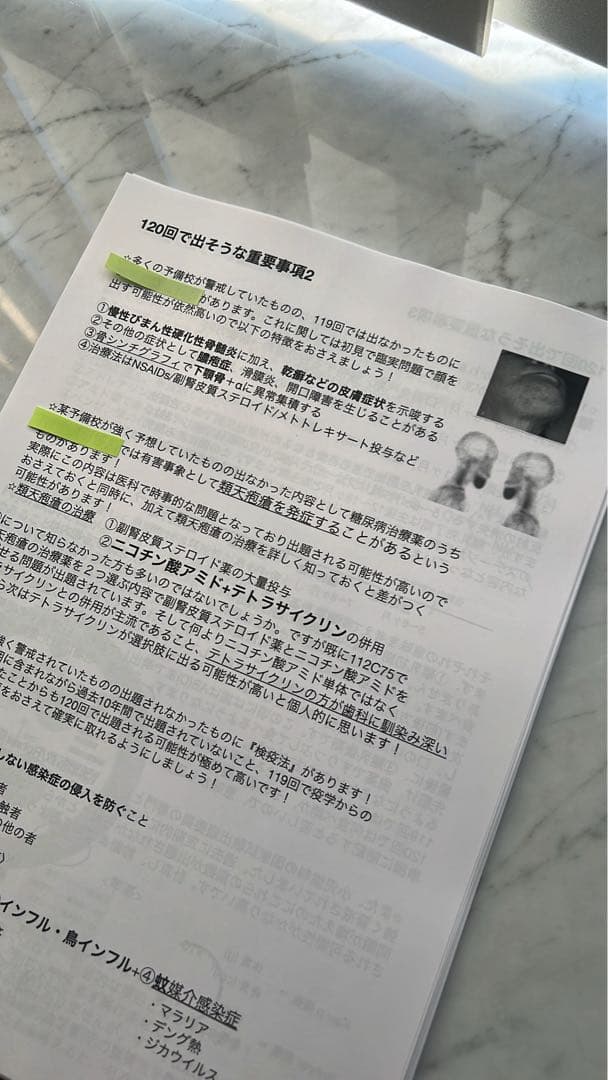 120回で出そうな重要事項2
☆多くの予備校が警戒していたものの、119回では出なかったものに
があります。これに関しては初見で臨実問題で顔を
出す可能性が依然高いので以下の特徴をおさえましょう！
①慢性びまん性硬化性骨髄炎に加え、乾癬などの皮膚症状を示唆する
②その他の症状として膿疱症、滑膜炎、開口障害を生じることがある
③骨シンチグラフィで下顎骨+αに異常集積する
④治療法はNSAIDs/副腎皮質ステロイド/メトトレキサート投与など
☆某予備校が強く予想していたものの出なかった内容として糖尿病治療薬のうち
では有害事象として類天疱瘡を発症することがあるという
ものがあります！
実際にこの内容は医科で時事的な問題となっており出題される可能性が高いので
おさえておくと同時に、加えて類天疱瘡の治療を詳しく知っておくと差がつく
可能性があります！
☆類天疱瘡の治療
①副腎皮質ステロイド薬の大量投与
②ニコチン酸アミド+テトラサイクリンの併用
について知らなかった方も多いのではないでしょうか。ですが既に112C75で
天疱瘡の治療薬を2つ選ぶ内容で副腎皮質ステロイド薬とニコチン酸アミドを
せる問題が出題されています。そして何よりニコチン酸アミド単体ではなく
サイクリンとの併用が主流であること、テトラサイクリンの方が歯科に馴染み深い
ら次はテトラサイクリンが選択肢に出る可能性が高いと個人的に思います！
強く警戒されていたものの出題されなかったものに『検疫法』があります！
に含まれながら過去10年間で出題されていないこと、119回で疫学からの
たことからも120回で出題される可能性が極めて高いです！
をおさえて確実に取れるようにしましょう！
しない感染症の侵入を防ぐこと
者
触者
の他の者
インフル・鳥インフル+④蚊媒介感染症
・マラリア
・デング熱
・ジカウイルス